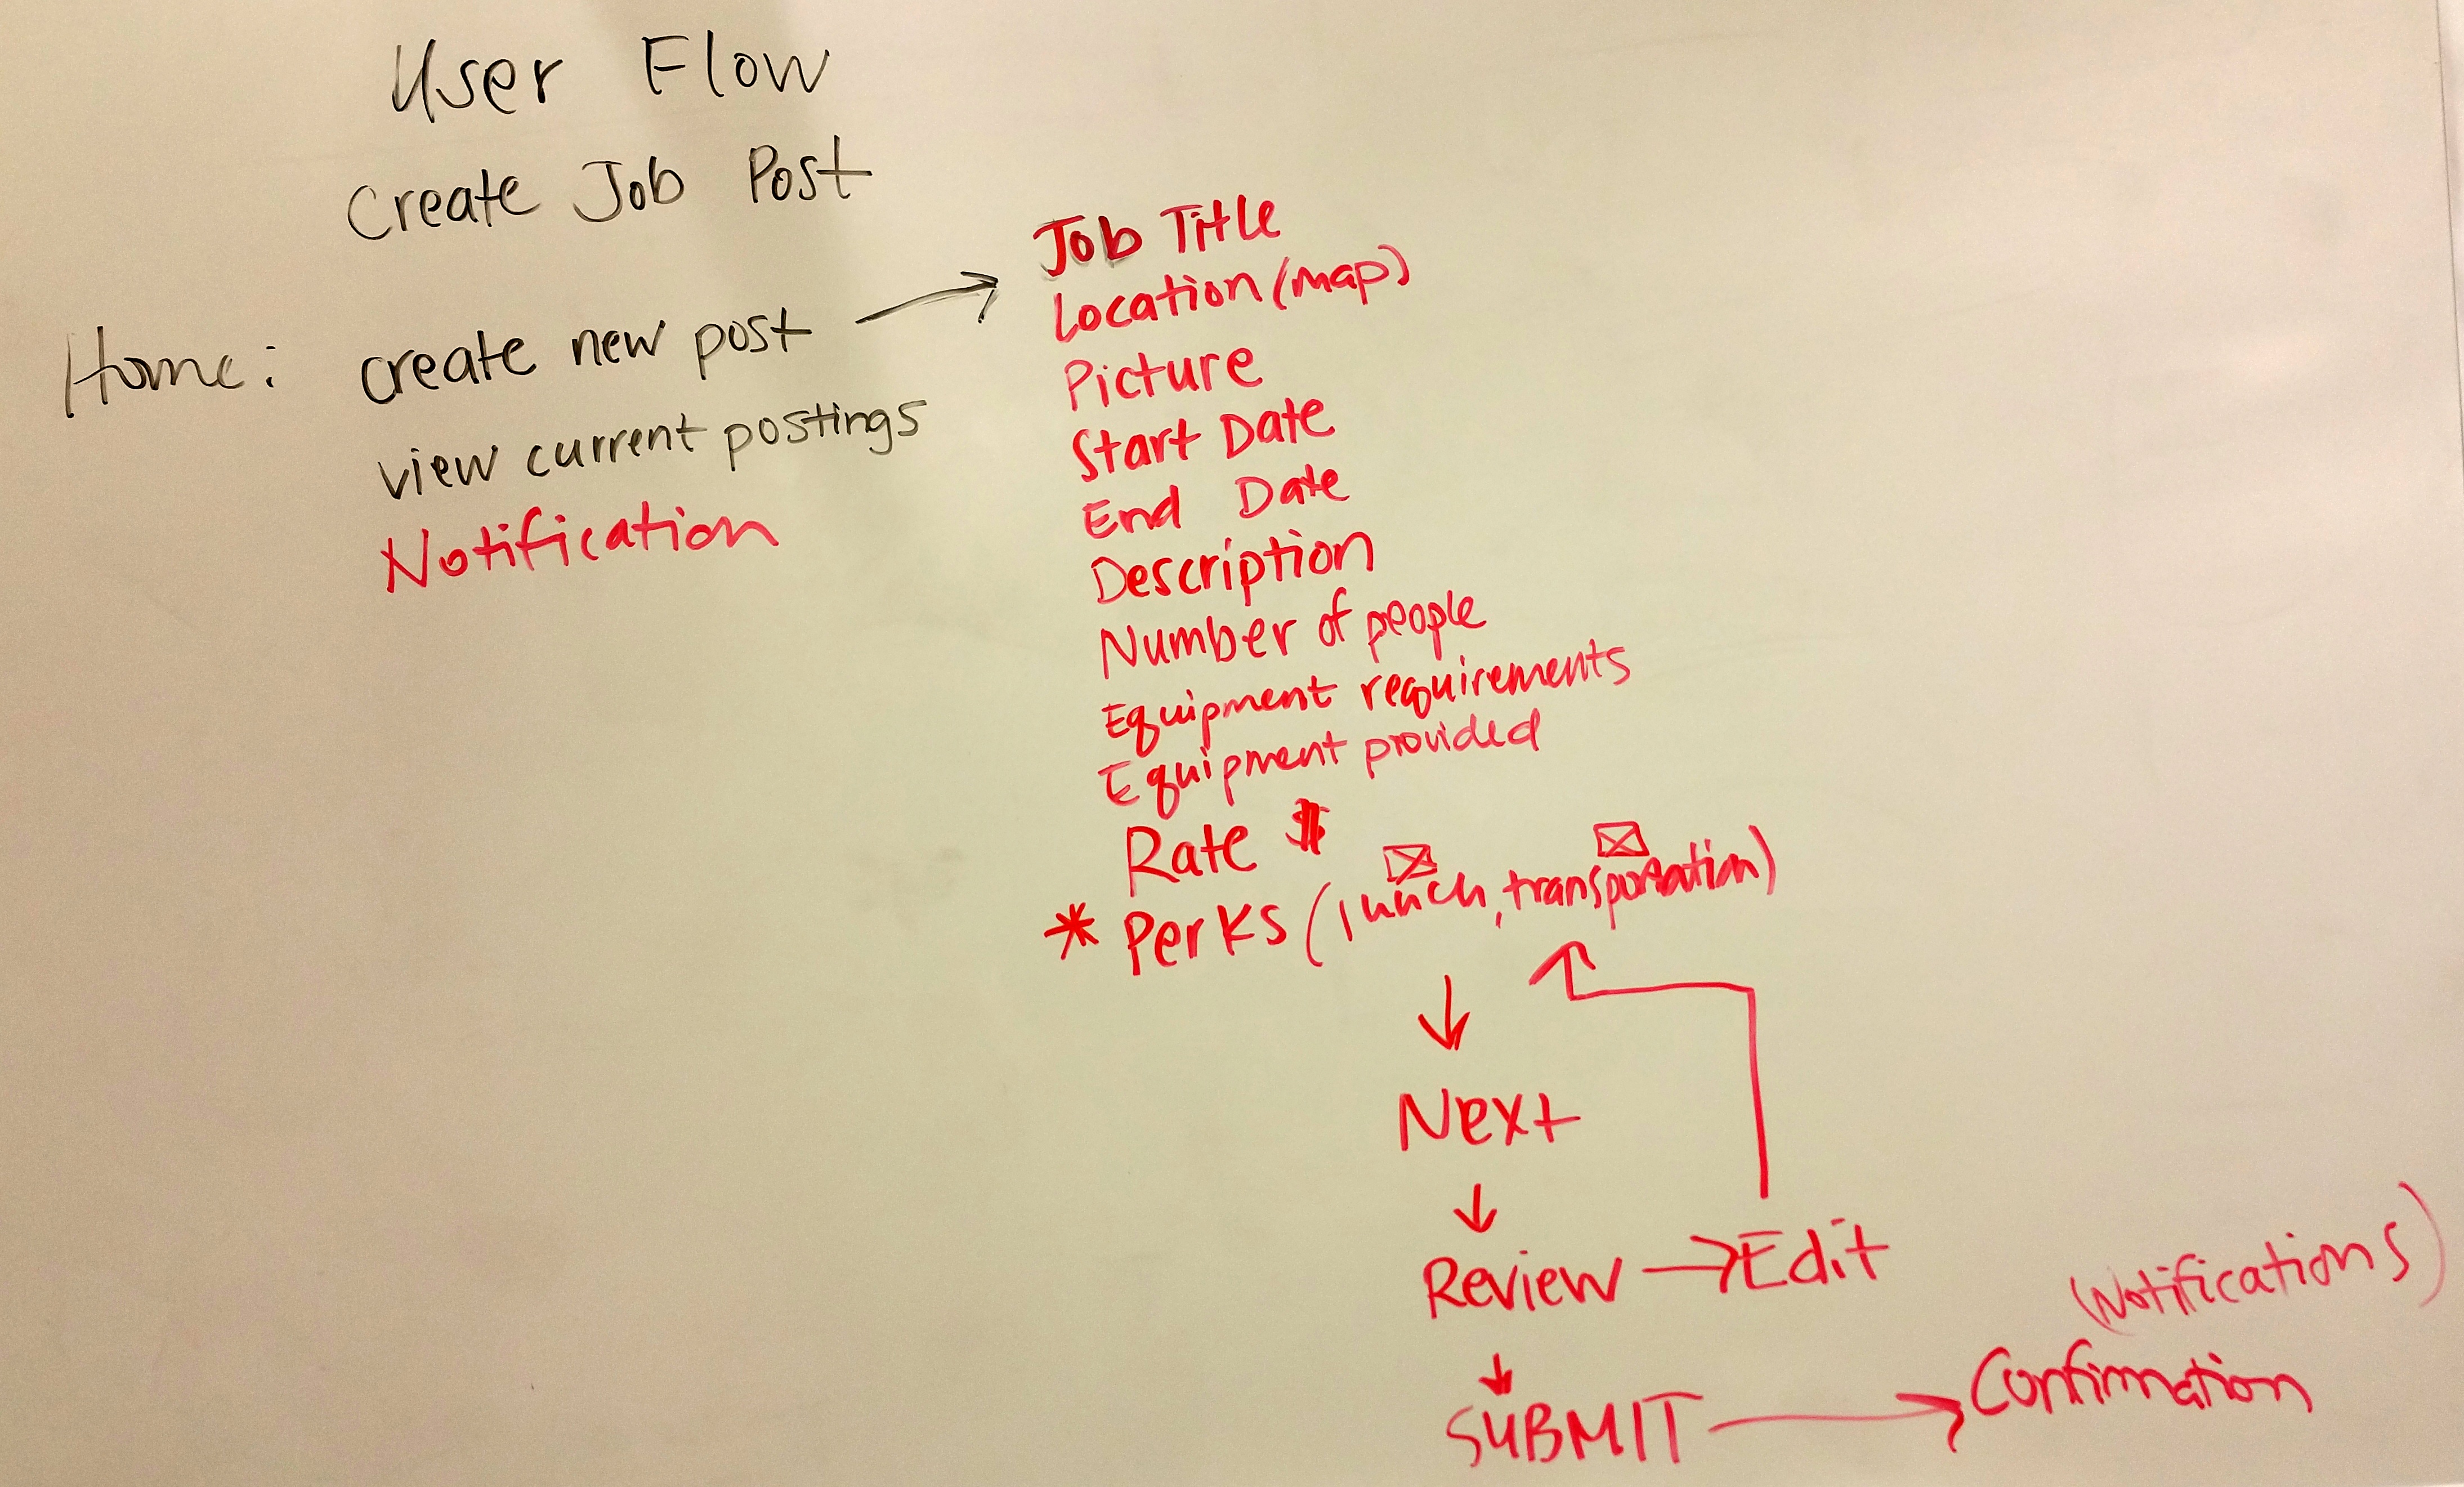 User Flow
Create Job Post
Home: create new post
view current postings
Notification
Job Title
Location (map)
Picture
Start Date
End Date
Description
Number of people
Equipment requirements
Equipment provided
Rate $
* Perks (lunch, transportation)
Next
Review Edit
(Notifications)
SUBMIT Confirmation